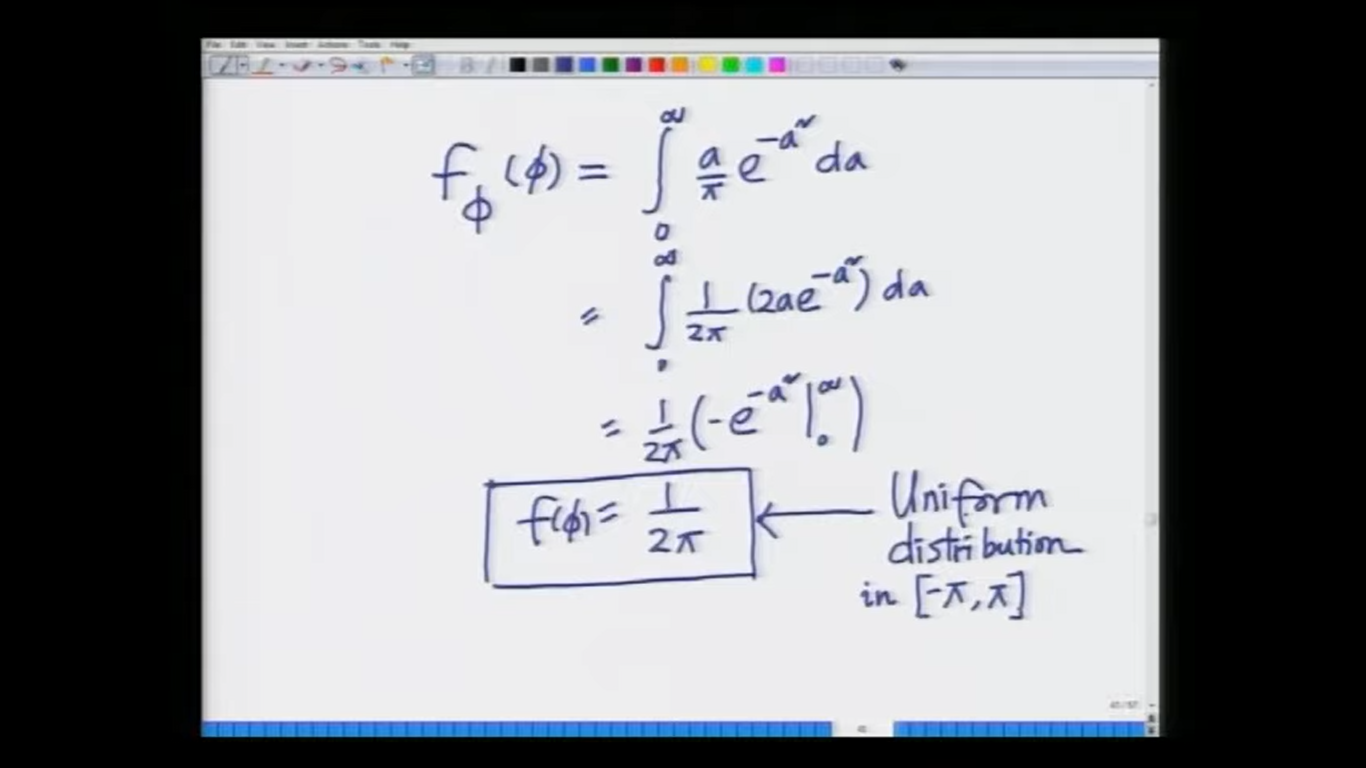 File Edit View Insert Actions Tools Help
f_ϕ (ϕ) = ∫_0^∞ a/π e^{-a²} da
= ∫_0^∞ 1/2π (2ae^{-a²}) da
= 1/2π (-e^{-a²} |_0^∞)
f(ϕ) = 1/2π ← Uniform
distribution
in [-π, π]